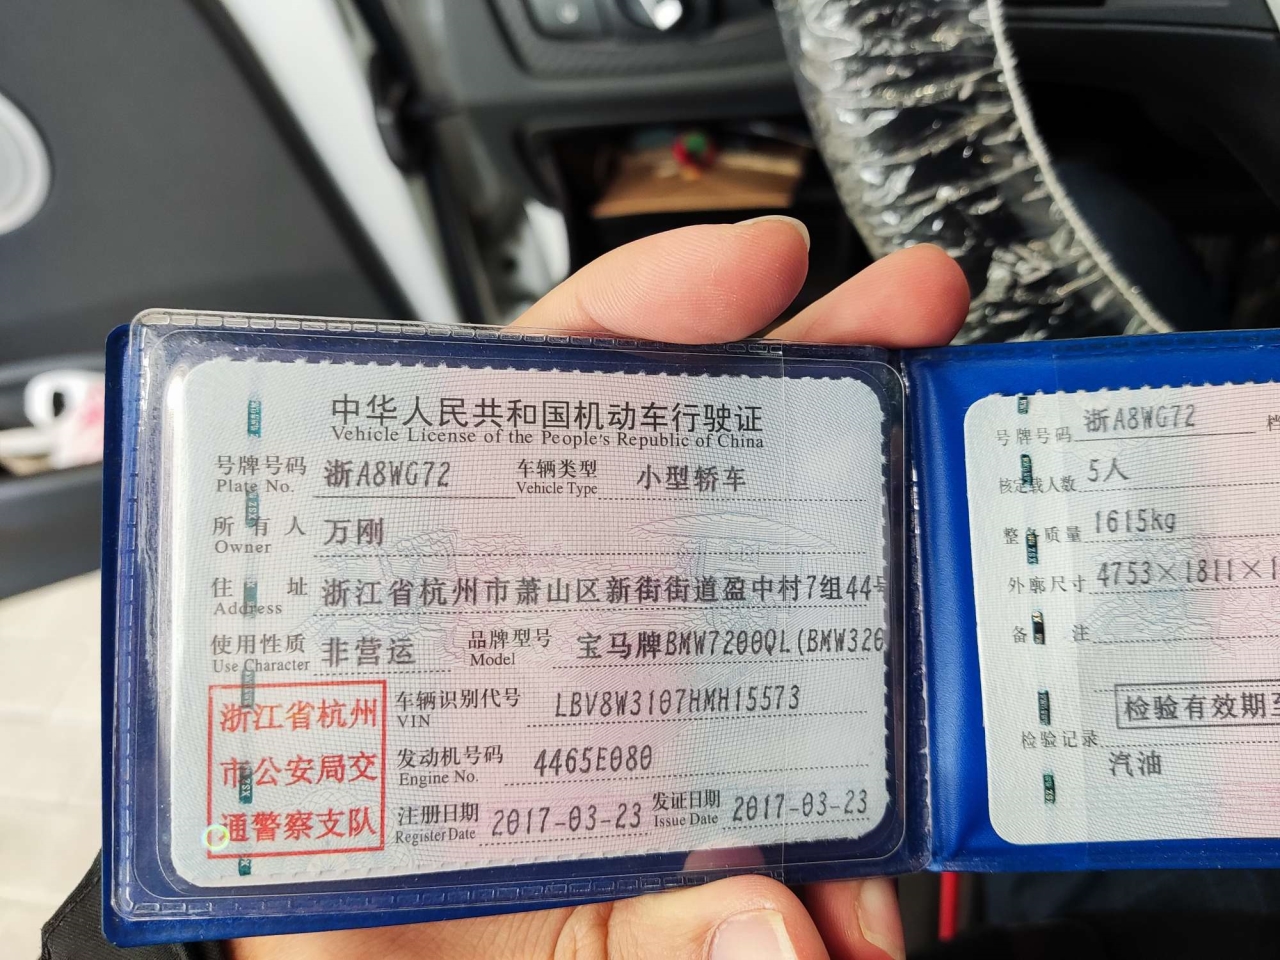 中华人民共和国机动车行驶证
Vehicle License of the People's Republic of China
号牌号码 浙A8WG72 车辆类型 小型轿车
Plate No. Vehicle Type
所有人 万刚
Owner
住址 浙江省杭州市萧山区新街街道盈中村7组44号
Address
使用性质 非营运 品牌型号 宝马牌BMW7200QL(BMW320
Use Character Model
浙江省杭州
市公安局交
通警察支队
车辆识别代号 LBV8W3107HMH15573
VIN
发动机号码 4465E080
Engine No.
注册日期 2017-03-23 发证日期 2017-03-23
Register Date Issue Date
号牌号码 浙A8WG72
核定载人数 5人
整备质量 1615kg
外廓尺寸 4753×1811×1
备注
检验有效期至
检验记录
汽油